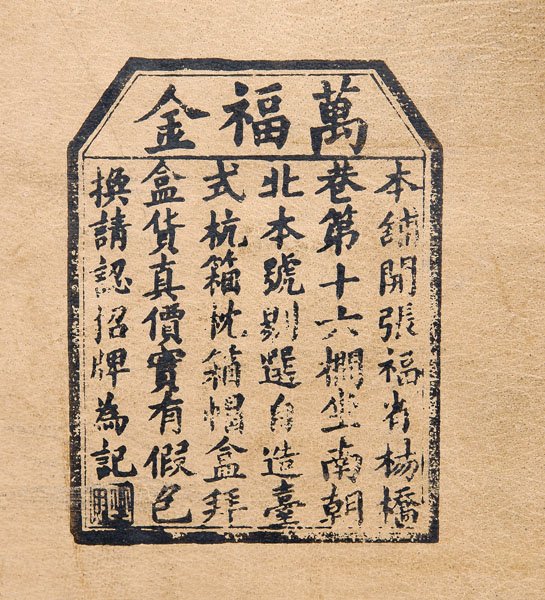 萬福金
本舖開張福省楊橋
巷第十六欄坐南朝
北本號剔選自造臺
式杭箱枕箱帽盒拜
盒貨真價實有假包
換請認招牌為記